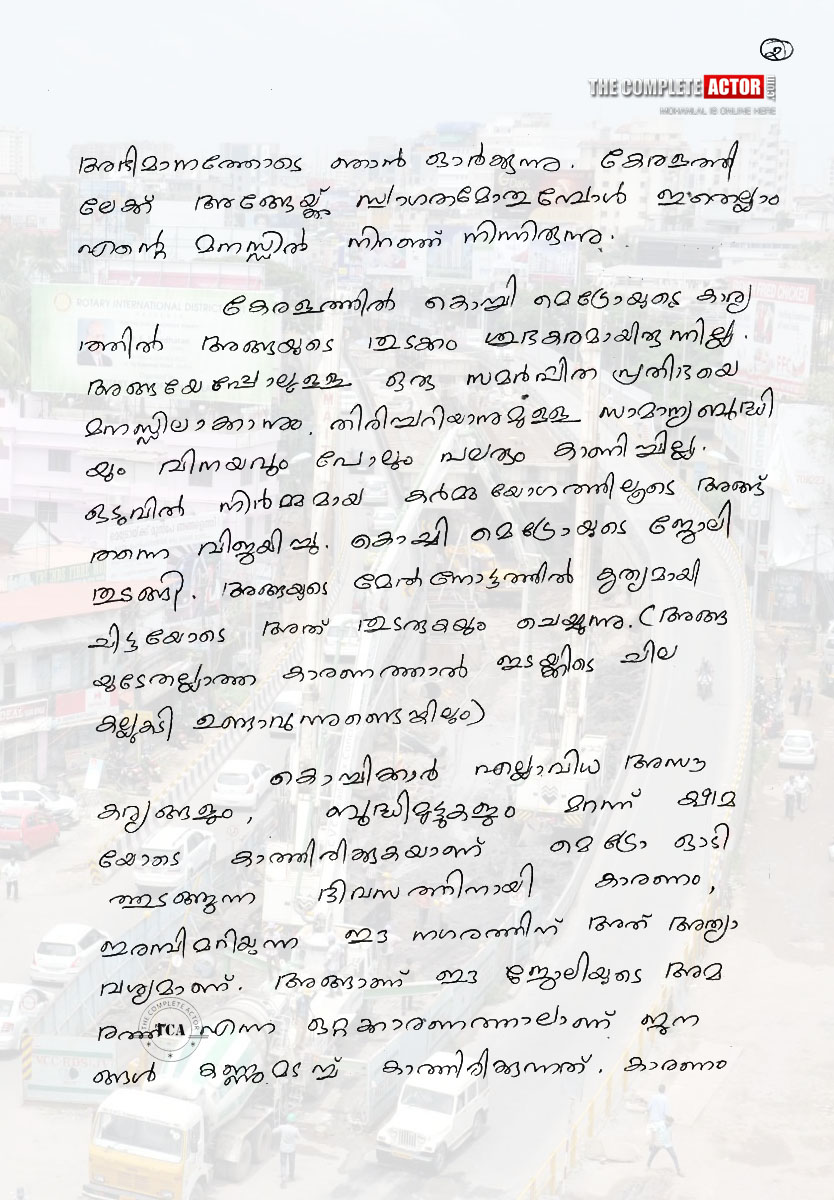 2
THE COMPLETE ACTOR .COM
MOHANLAL IS ONLINE HERE
അഭിമാനത്തോടെ ഞാൻ ഓർക്കുന്നു. കേരളത്തി
ലേക്ക് അങ്ങേയ്ക്ക് സ്വാഗതമോതുമ്പോൾ ഇതെല്ലാം
എന്റെ മനസ്സിൽ നിറഞ്ഞ് നിന്നിരുന്നു.
കേരളത്തിൽ കൊച്ചി മെട്രോയുടെ കാര്യ
ത്തിൽ അങ്ങയുടെ തുടക്കം ശുഭകരമായിരുന്നില്ല.
അങ്ങയേപ്പോലുള്ള ഒരു സമർപ്പിത പ്രതിഭയെ
മനസ്സിലാക്കാനും, തിരിച്ചറിയാനുമുള്ള സാമാന്യബുദ്ധി
യും വിനയവും പോലും പലരും കാണിച്ചില്ല.
ഒടുവിൽ നിർമ്മമായ കർമ്മയോഗത്തിലൂടെ അങ്ങ്
തന്നെ വിജയിച്ചു. കൊച്ചി മെട്രോയുടെ ജോലി
തുടങ്ങി. അങ്ങയുടെ മേൽനോട്ടത്തിൽ കൃത്യമായി
ചിട്ടയോടെ അത് തുടരുകയും ചെയ്യുന്നു. (അങ്ങ
യുടേതല്ലാത്ത കാരണത്താൽ ഇടയ്ക്കിടെ ചില
കല്ലുകടി ഉണ്ടാവുന്നുണ്ടെങ്കിലും)
കൊച്ചിക്കാർ എല്ലാവിധ അസൗ
കര്യങ്ങളും, ബുദ്ധിമുട്ടുകളും മറന്ന് ക്ഷമ
യോടെ കാത്തിരിക്കുകയാണ് മെട്രോ ഓടി
ത്തുടങ്ങുന്ന ദിവസത്തിനായി കാരണം,
ഇരമ്പിമറിയുന്ന ഈ നഗരത്തിന് അത് അത്യാ
വശ്യമാണ്. അങ്ങാണ് ഈ ജോലിയുടെ അമ
രത്ത് എന്ന ഒറ്റക്കാരണത്താലാണ് ജന
ങ്ങൾ കണ്ണുമടച്ച് കാത്തിരിക്കുന്നത്. കാരണം
THE COMPLETE ACTOR
TCA
ROTARY INTERNATIONAL DISTRICT
FRIED CHICKEN